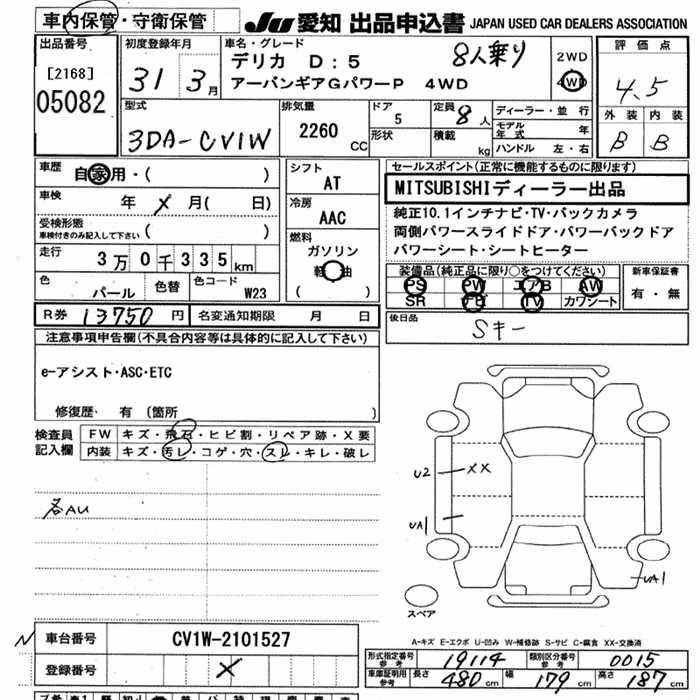 車内保管・守衛保管
JU 愛知 出品申込書 JAPAN USED CAR DEALERS ASSOCIATION
出品番号
[2168]
05082
初度登録年月
31 3月
車名・グレード
デリカ D:5 8人乗り
アーバンギアGパワーP 4WD
2WD
4WD
評価点
4.5
外装 内装
B B
型式
3DA-CV1W
排気量
2260 CC
ドア
5
形状
定員 8人
積載 kg
ディーラー・並行
モデル年式 年
ハンドル 左・右
車歴
自家用・( )
車検
年 メ 月( 日)
受検形態
車検付きのみ記入して下さい ( )
走行
3万0千335km
色
パール
色替
色コード
W23
シフト
AT
冷房
AAC
燃料
ガソリン
軽油
( )
セールスポイント(正常に機能するものに限ります)
MITSUBISHIディーラー出品
純正10.1インチナビ・TV・バックカメラ
両側パワースライドドア・パワーバックドア
パワーシート・シートヒーター
装備品(純正品に限り○をつけてください)
PS PW エアB AW
SR ナビ TV カワシート
新車保証書
有・無
R券 13750円
名変通知期限 月 日
後日品
Sキー
注意事項申告欄(不具合内容等は具体的に記入して下さい)
e-アシスト・ASC・ETC
修復歴・ 有 (箇所 )
検査員
記入欄
FW キズ・飛石・ヒビ割・リペア跡・X要
内装 キズ・汚レ・コゲ・穴・スレ・キレ・破レ
各AU
U2 XX
UA1
UA1
スペア
A-キズ E-エクボ U-凹み W-補修跡 S-サビ C-腐食 XX-交換済
N 車台番号 CV1W-2101527
登録番号 X
形式指定番号
参考
19114
類別区分番号
参考
0015
車庫証明用
参考
長さ 480cm 幅 179cm 高さ 187cm